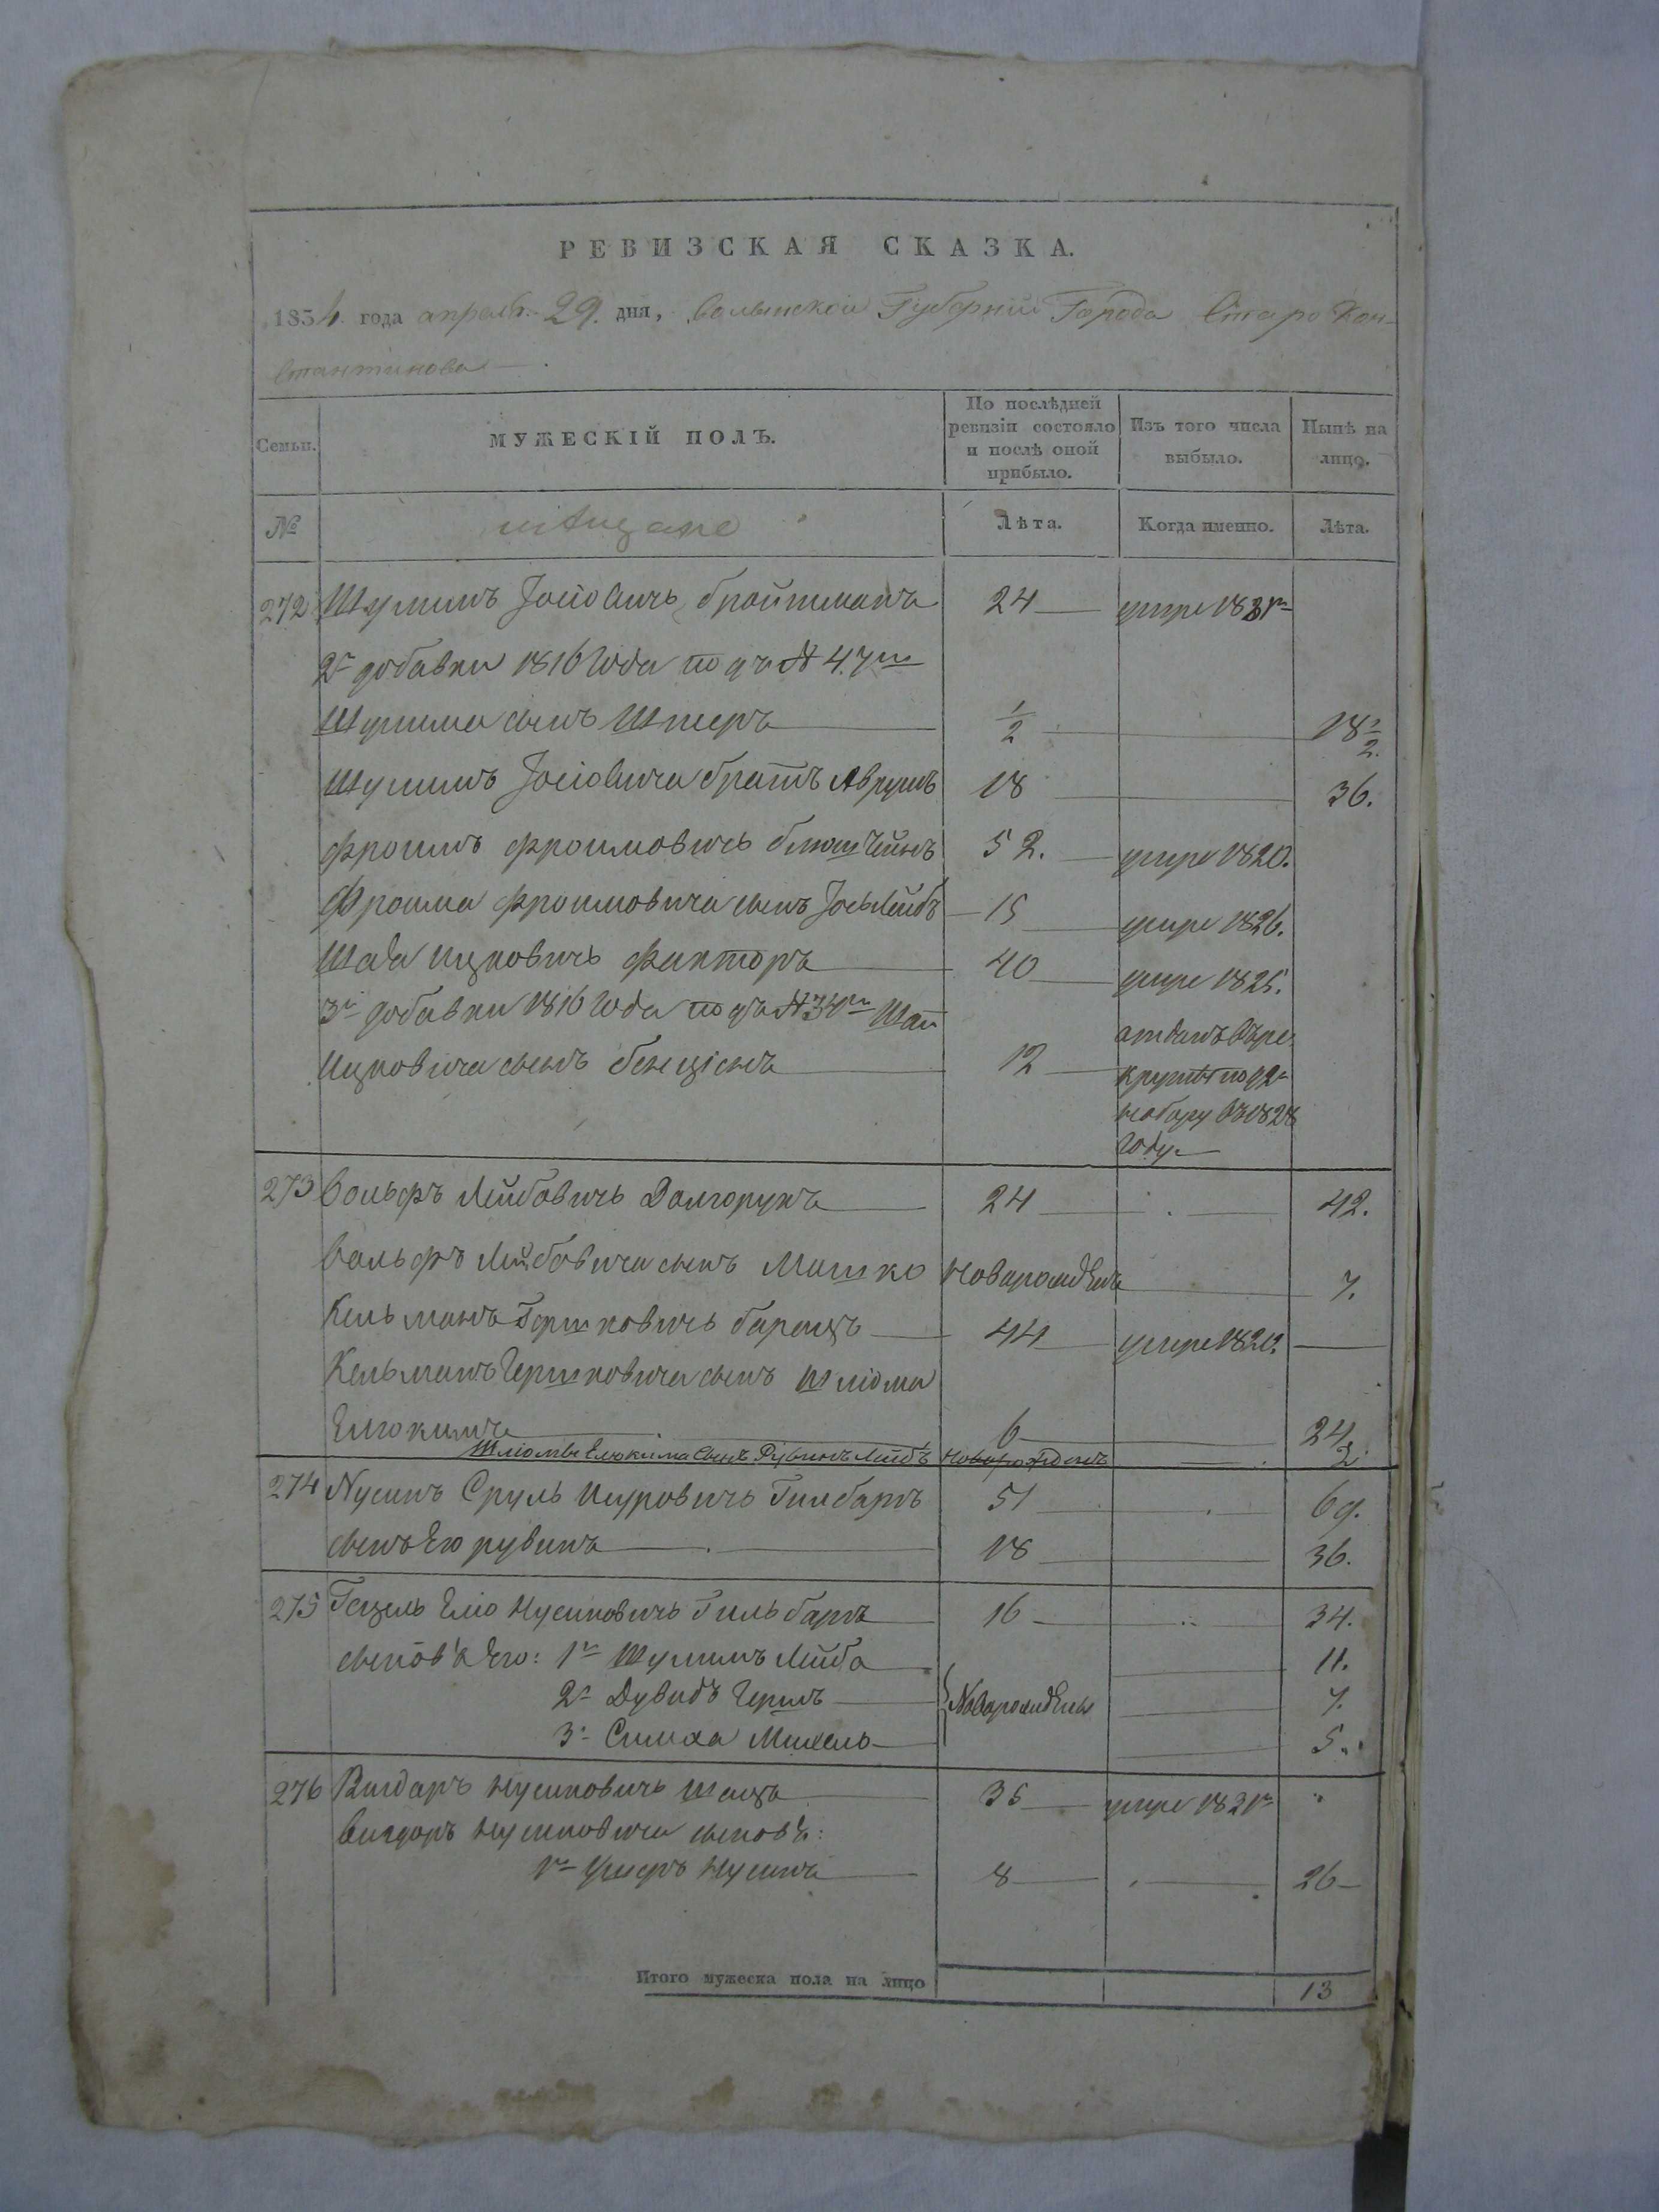 РЕВИЗСКАЯ СКАЗКА.
1834 года апреля 29 дня, Волынской Губерніи Города Старо Кон-
стантинова
Семьи. МУЖЕСКІЙ ПОЛЪ. По послѣдней ревизіи состояло и послѣ оной прибыло. Изъ того числа выбыло. Нынѣ на лицо.
№ мѣщане Лѣта. Когда именно. Лѣта.
272 Шулимъ Іосіовичь Бройтманъ 24 умре 1831го
2й добавки 1816 Года подъ № 47м
Шулима сынъ Шмеръ ½ 18½.
Шулимъ Іосіовича братъ Аврумъ 18 36.
Фроимъ Фроимовичь 52. умре 1820.
Фроима Фроимовича сынъ Іось Лейбъ 15 умре 1826.
Шая Ицковичь Факторъ 40 умре 1825.
3й добавки 1816 Года подъ №34м Шаи
Ицковича сынъ Бенціонъ 12 отданъ въ ре
круты по 92
набору въ 1828
Году
273 Вольфъ Лейбовичь Долгорукъ 24 42.
Вольфъ Лейбовича сынъ Мошко Новорожденъ 7.
Кельманъ Гершковичь 44 умре 1820.
Кельманъ Гершковича сынъ Шліома
Елюкимъ 6 24
Шліомы Елюкима сынъ Рувинъ Лейбъ Новорожденъ 2.
274 Нусинъ Сруль Гилбаргъ 51 69.
сынъ Его рувинъ 18 36.
275 Гецель Еліо Нусиновичь Гильбаргъ 16 34.
сыновя Его: 1й Шулимъ Лейба 11.
2й Дувидъ Гершъ Новорождены 7.
3й Симха Михель 5.
276 Вигдоръ Нусиновичь 35 умре 1831го
Вигдоръ Нусиновича сыновя:
1й Ушеръ Нусинъ 8 26
Итого мужеска пола на лицо 13